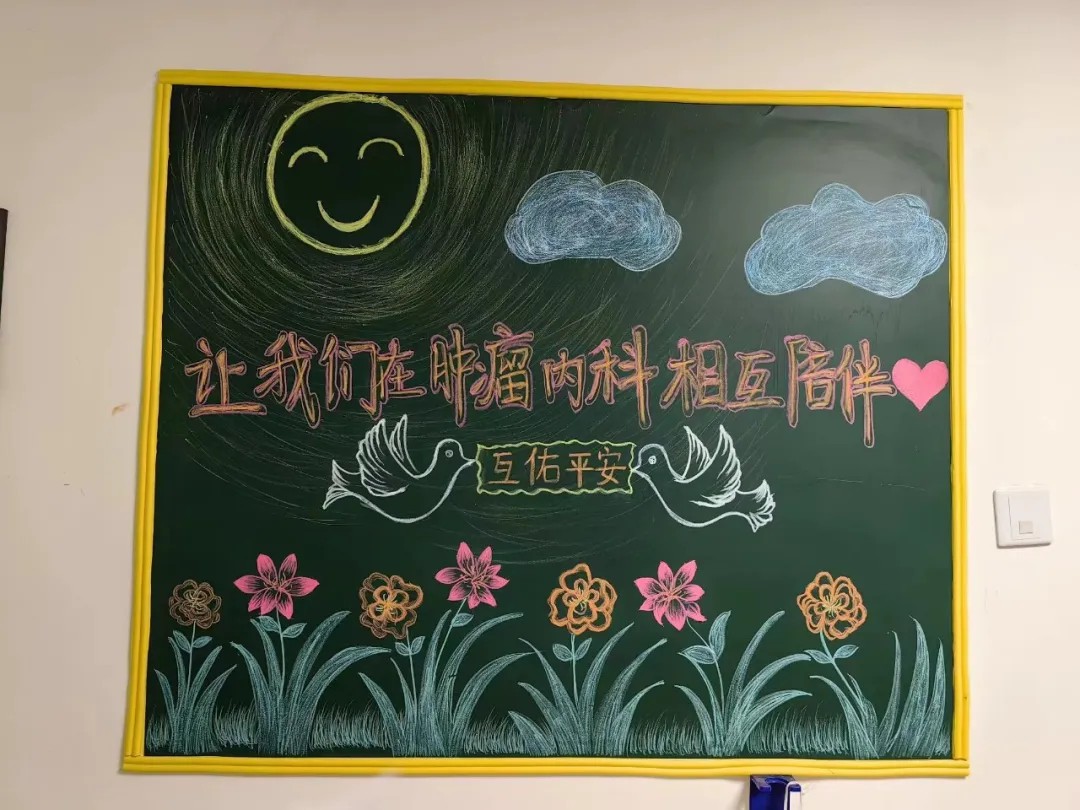 让我们在肿瘤内科相互陪伴
互佑平安